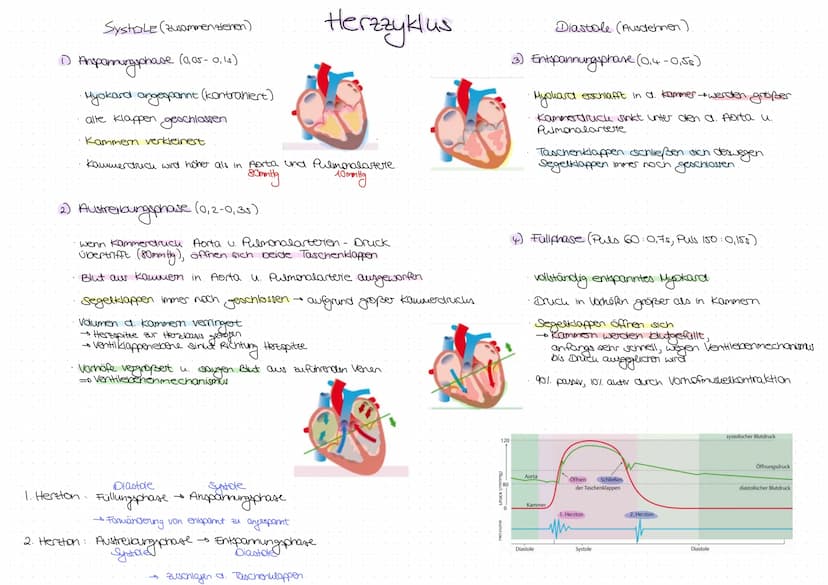 Herzzyklus
Systole (zusammenziehen)
1) Anspannungsphase (0,05 - 0,1s)
· Myokard angespannt (kontrahiert)
· alle Klappen geschlossen
· Kammern verkleinert
· Kammerdruck wird höher als in Aorta und Pulmonalarterie
80mmHg 10mmHg
2) Austreibungsphase (0,2 - 0,3s)
· wenn Kammerdruck Aorta u. Pulmonalarterien - Druck
übertrifft (80mmHg), öffnen sich beide Taschenklappen
· Blut aus Kammern in Aorta u. Pulmonalarterie ausgeworfen
· Segelklappen immer noch geschlossen → aufgrund großer Kammerdrucks
· Volumen d. Kammern verringert
→ Herzspitze zur Herzbasis gezogen
→ Ventilklappenebene sinkt Richtung Herzspitze
· Vorhöfe vergrößert u. saugen Blut aus zuführenden Venen
⇒ Ventilebenenmechanismus
Diastole Systole
1. Herzton: Füllungsphase → Anspannungsphase
von entspannt zu angespannt
2. Herzton: Austreibungsphase → Entspannungsphase
Systole Diastole
→ zuschlagen d. Taschenklappen
Diastole (Ausdehnen)
3) Entspannungsphase (0,4 - 0,5s)
· Myokard erschlafft in d. Kammer → werden größer
· Kammerdruck sinkt unter den d. Aorta u.
Pulmonalarterie
· Taschenklappen schließen sich deswegen
Segelklappen immer noch geschlossen
4) Füllphase (Puls 60: 0,7s, Puls 150: 0,15s)
· vollständig entspanntes Myokard
· Druck in Vorhöfen größer als in Kammern
· Segelklappen öffnen sich
→ Kammern werden blutgefüllt,
anfangs sehr schnell, wegen Ventilebenenmechanismus
bis Druck ausgeglichen wird
· 90% passiv, 10% aktiv durch Vorhofmuskelkontraktion
120
systolischer Blutdruck
Öffnungsdruck
Aorta
Öffnen Schließen
der Taschenklappen
diastolischer Blutdruck
80
Kammer
0
1. Herzton 2. Herzton
Herztöne
Diastole Systole Diastole